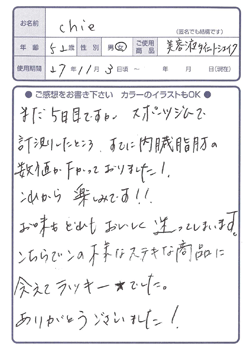 お名前 chie
(匿名でも結構です)
年齢 52歳 性別 男・女 ご使用商品 美容液ダイエットシェイク
使用期間 27年11月3日〜 年 月 日(現在)
●ご感想をお書き下さい カラーのイラストもOK●
まだ5日目ですが スポーツジムで
計測したところ、すでに内臓脂肪の
数値が下がっておりました!
これから 楽しみです!!
お味もどれもおいしく 迷ってしまいます。
こちらでこの様なステキな商品に
会えてラッキー★でした。
ありがとうございました!